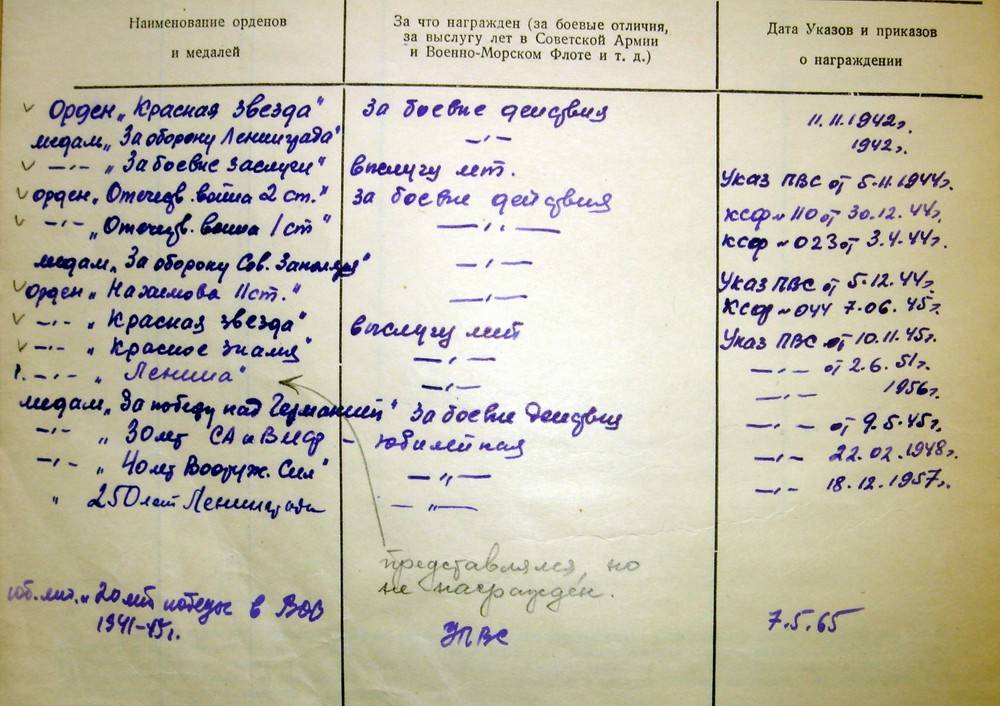 Наименование орденов
и медалей
За что награжден (за боевые отличия,
за выслугу лет в Советской Армии
и Военно-Морском Флоте и т. д.)
Дата Указов и приказов
о награждении
Орден „Красная Звезда" За боевые действия 11.11.1942г.
медаль „За оборону Ленинграда" —„— 1942г.
—„— „За боевые заслуги" выслугу лет. Указ ПВС от 5-11-1944г.
орден „Отечеств. война 2 ст." За боевые действия КСФ № 110 от 30.12.44г.
—„— „Отечеств. война 1 ст —„— КСФ № 023 от 3.4.44г.
медаль „За оборону Сов. Заполяр" —„— Указ ПВС от 5.12.44г.
Орден „Нахимова II ст." —„— КСФ № 044 7.06.45г.
—„— „Красная звезда" выслугу лет Указ ПВС от 10.11.45г.
—„— „Красное знамя" —„— —„— от 2.6.51г.
—„— „Ленина" —„— —„— 1956г.
медаль „За победу над Германией" За боевые действия —„— от 9.5.45г.
—„— „30 лет СА и ВМФ — юбилейная —„— 22.02.1948г.
—„— „40 лет Вооруж. Сил" —„— —„— 18.12.1957г.
„ 250 лет Ленинграда —„—
представлялся, но
не награжден.
юб. мед. „20 лет победы в ВОВ
1941-45г. УПВС 7.5.65